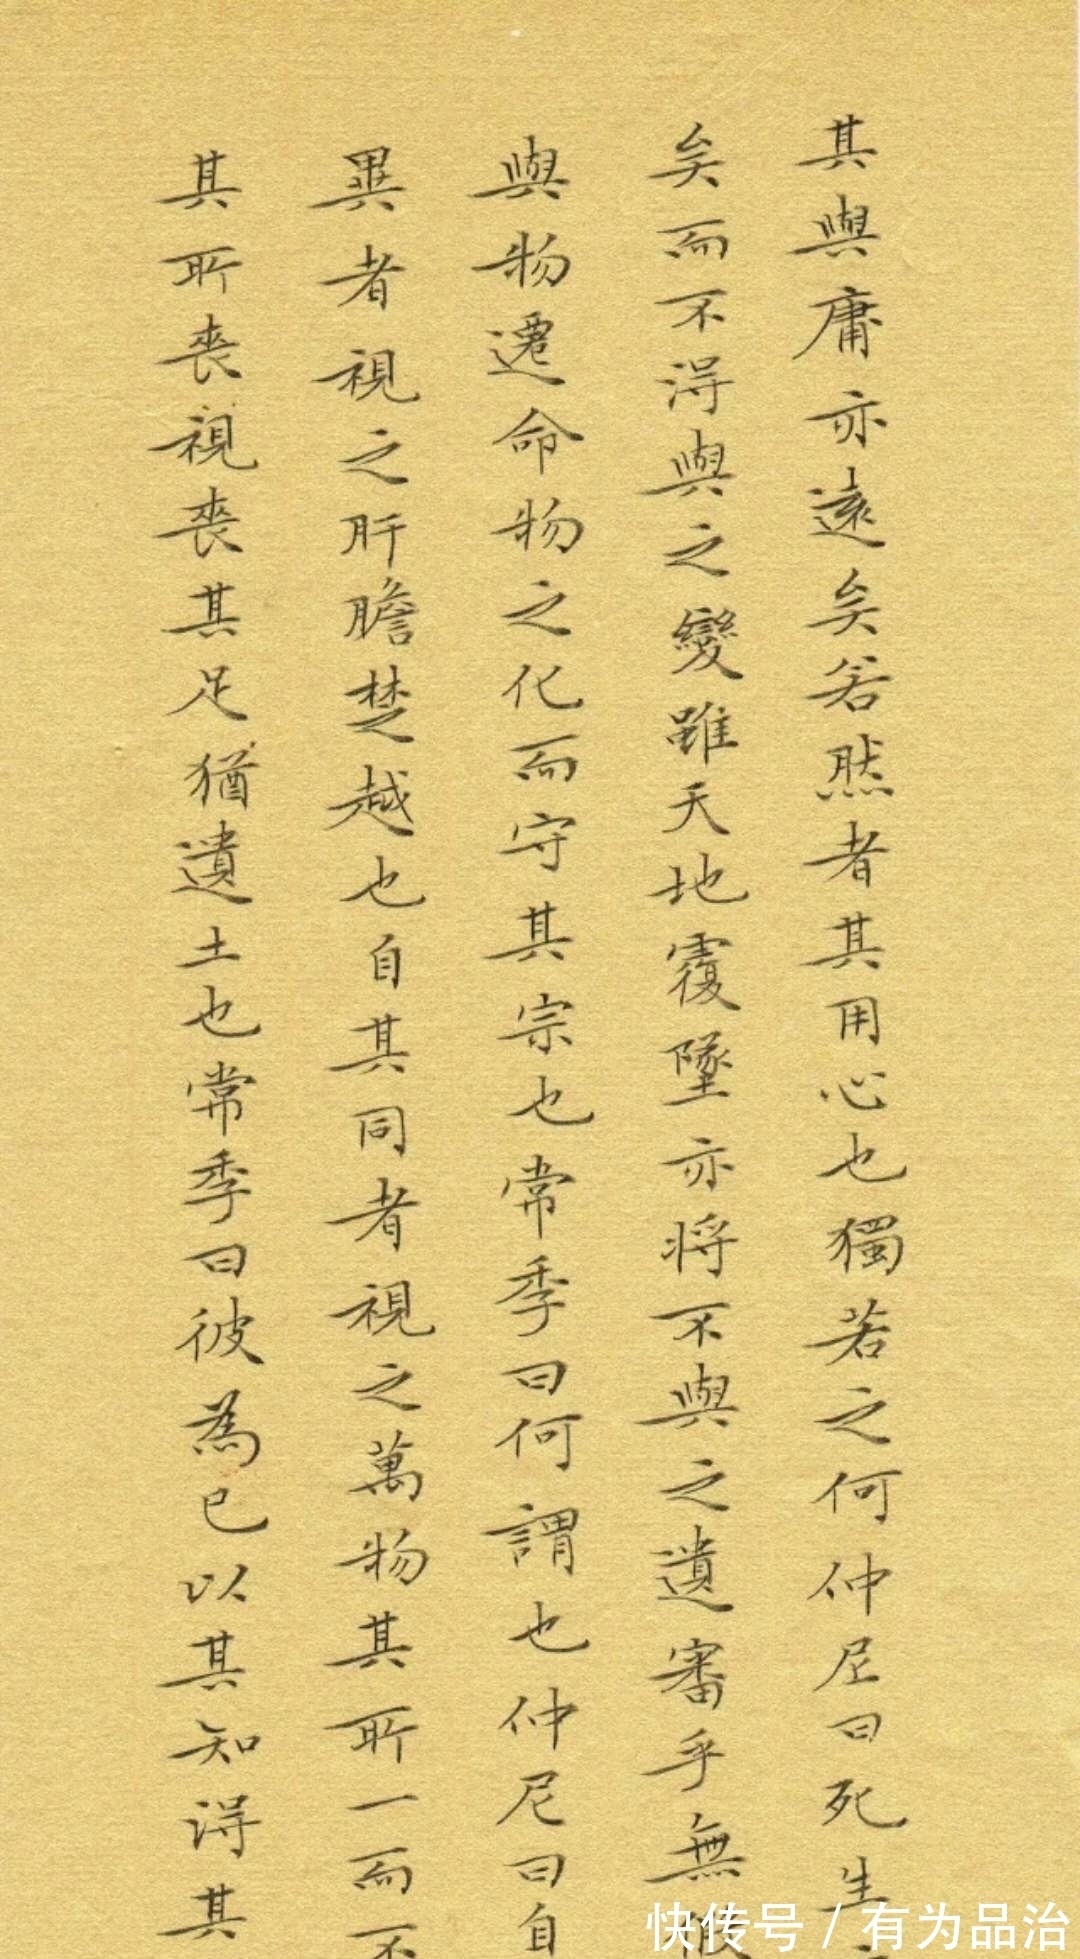 其與庸亦遠矣若然者其用心也獨若之何仲尼曰死生
矣而不得與之變雖天地覆墜亦将不與之遺審乎無
與物遷命物之化而守其宗也常季曰何謂也仲尼曰自
異者視之肝膽楚越也自其同者視之萬物其所一而不
其所喪視喪其足猶遺土也常季曰彼為己以其知得其
快传号 / 有为品治